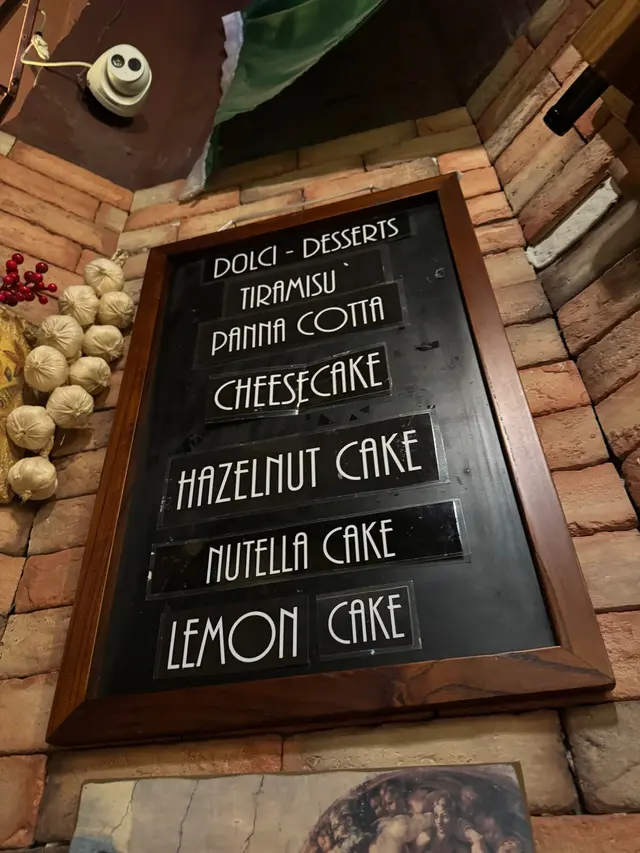 DOLCI - DESSERTS
TIRAMISU`
PANNA COTTA
CHEESECAKE
HAZELNUT CAKE
NUTELLA CAKE
LEMON CAKE